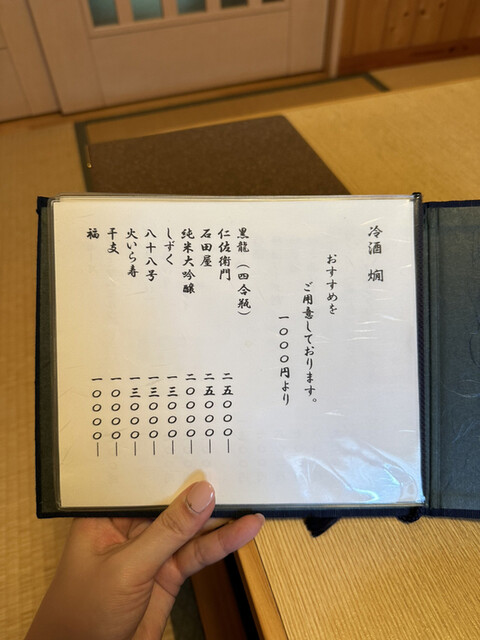 冷酒 燗
おすすめを
ご用意しております。
一〇〇〇円より
黒龍（四合瓶）
仁佐衛門 二五〇〇〇―
石田屋 二五〇〇〇―
純米大吟醸 二〇〇〇〇―
しずく 一三〇〇〇―
八十八号 一三〇〇〇―
火いら寿 一三〇〇〇―
干支 一〇〇〇〇―
福 一〇〇〇〇―